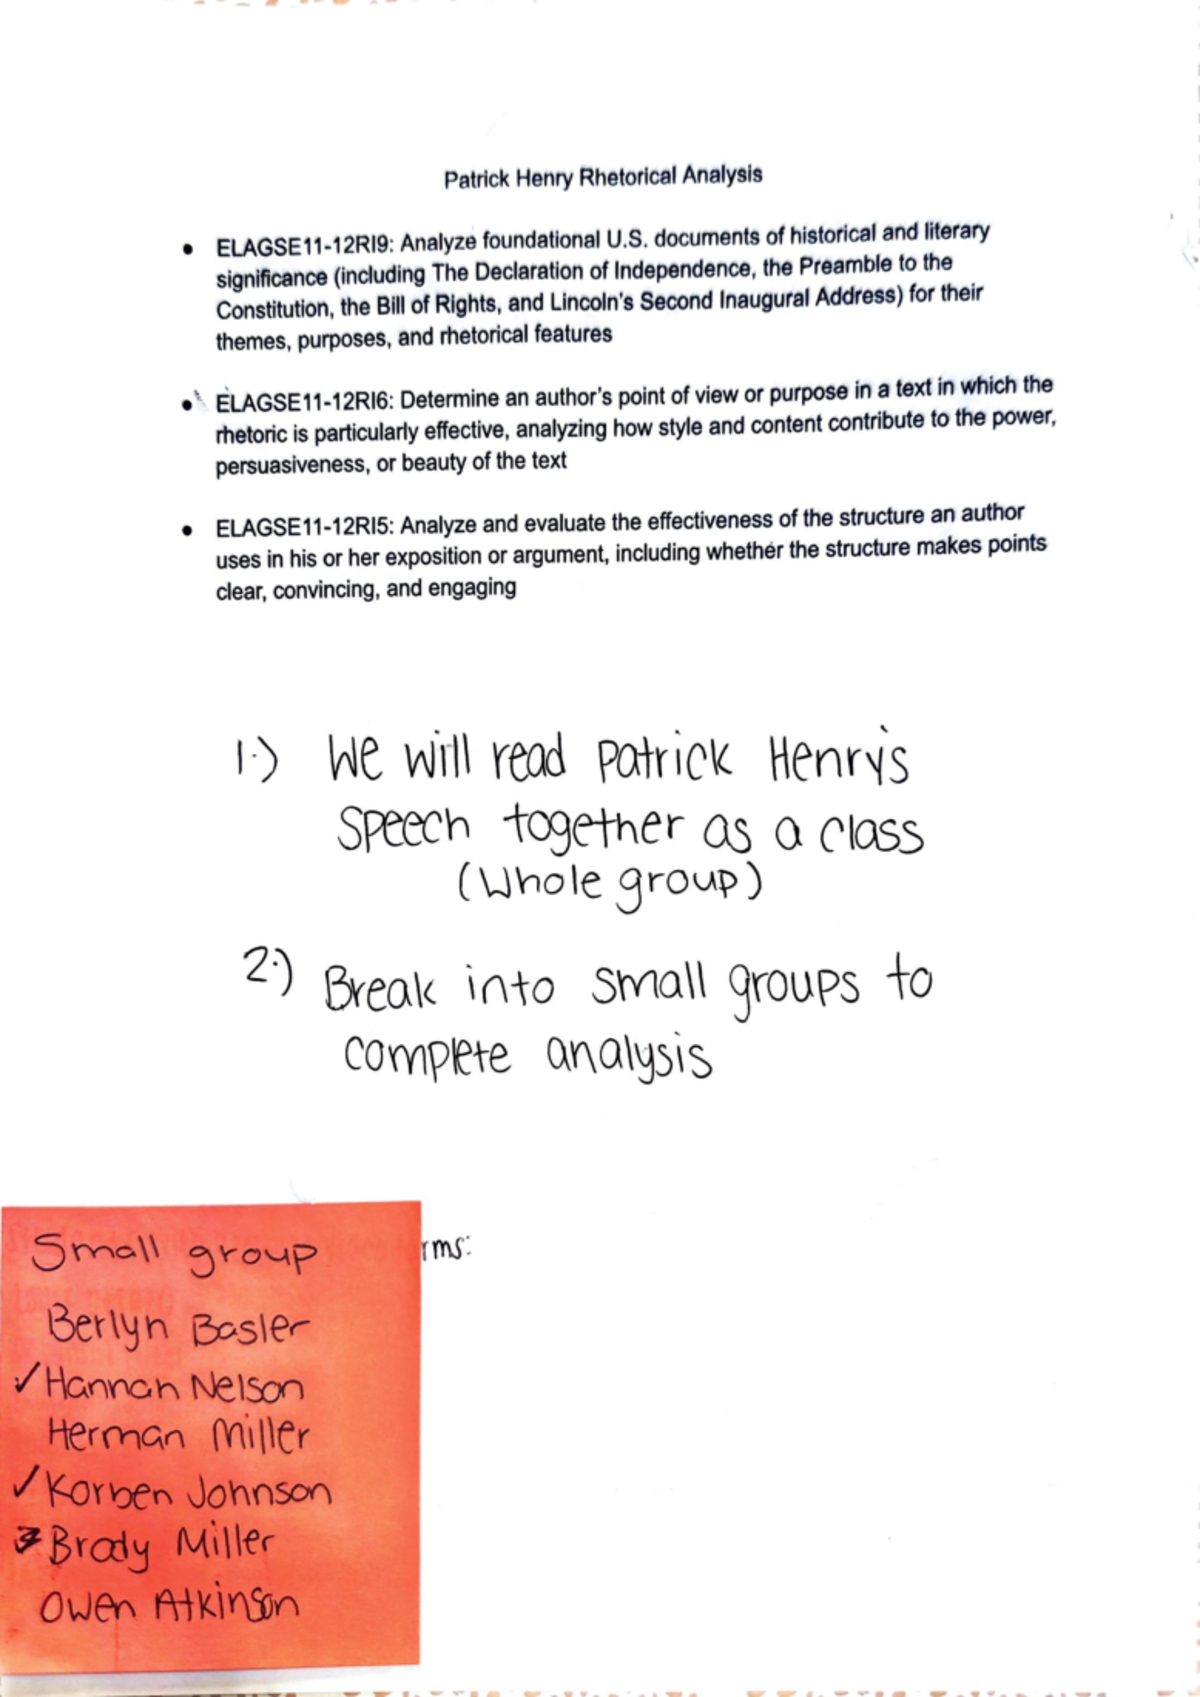 Patrick Henry Rhetorical Analysis
• ELAGSE11-12RI9: Analyze foundational U.S. documents of historical and literary
significance (including The Declaration of Independence, the Preamble to the
Constitution, the Bill of Rights, and Lincoln's Second Inaugural Address) for their
themes, purposes, and rhetorical features
• ELAGSE11-12RI6: Determine an author's point of view or purpose in a text in which the
rhetoric is particularly effective, analyzing how style and content contribute to the power,
persuasiveness, or beauty of the text
• ELAGSE11-12RI5: Analyze and evaluate the effectiveness of the structure an author
uses in his or her exposition or argument, including whether the structure makes points
clear, convincing, and engaging
1.) We will read Patrick Henry's
Speech together as a class
(Whole group)
2.) Break into small groups to
complete analysis
rms:
Small group
Berlyn Basler
✓ Hannah Nelson
Herman Miller
✓ Korben Johnson
Brody Miller
Owen Atkinson